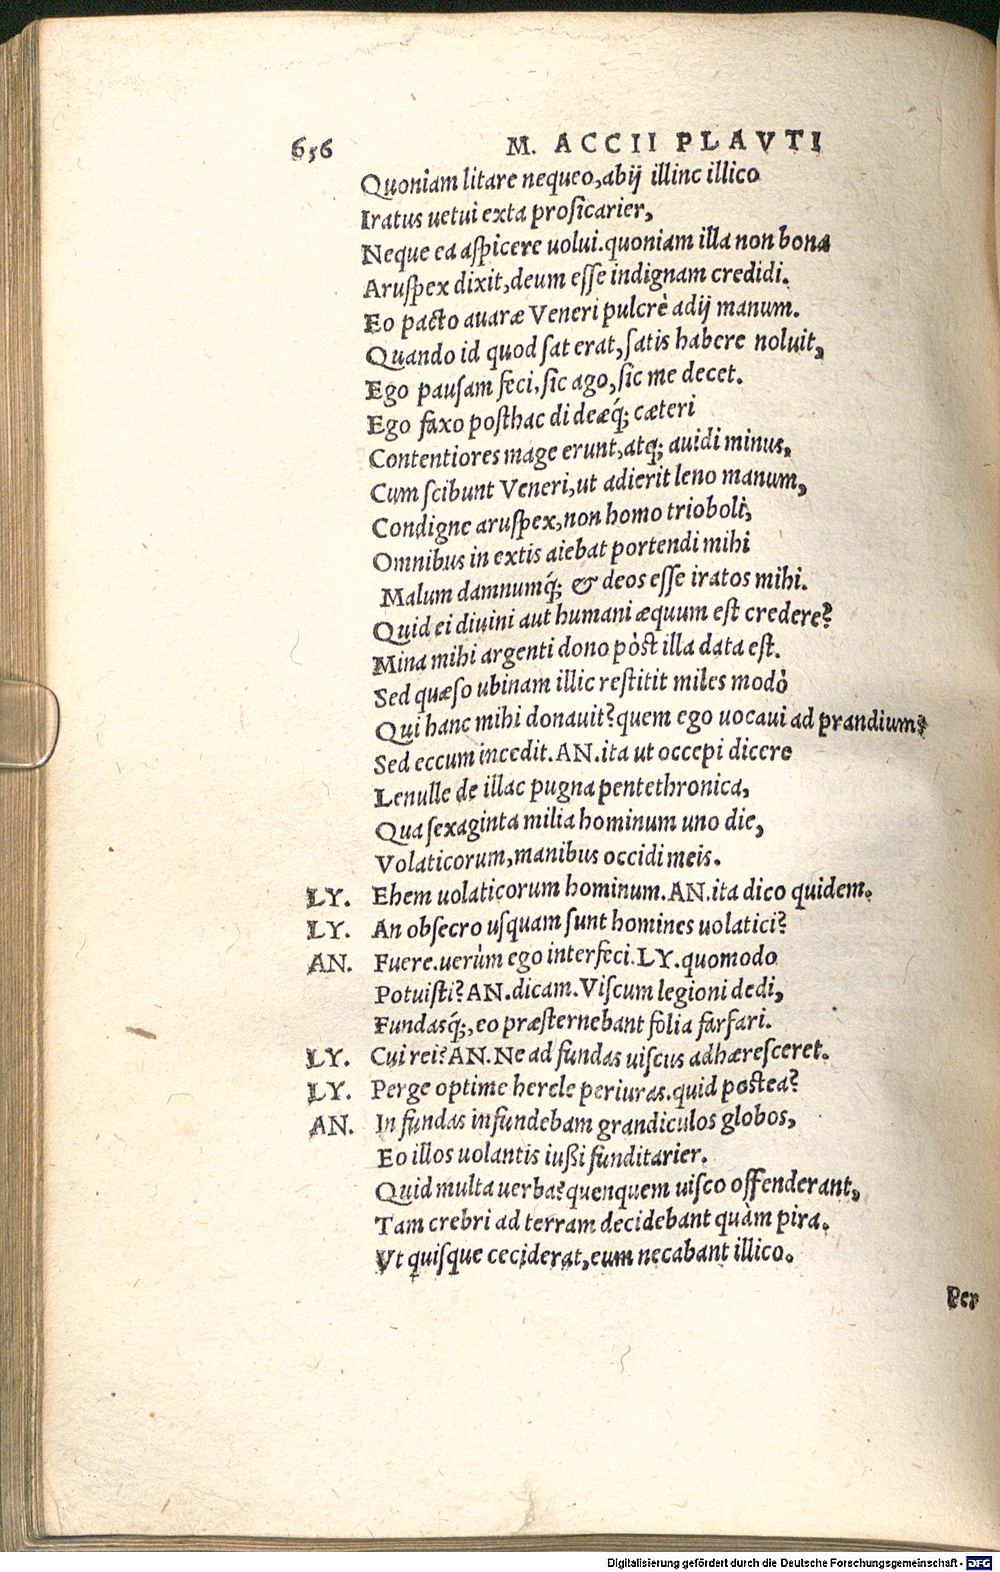 656 M. ACCII PLAVTI
Quoniam litare nequeo,abij illinc illico
Iratus uetui exta prosicarier,
Neque ea aspicere uolui.quoniam illa non bona
Aruspex dixit,deum esse indignam credidi.
Eo pacto auaræ Veneri pulcrè adij manum.
Quando id quod sat erat,satis habere noluit,
Ego pausam feci,sic ago,sic me decet.
Ego faxo posthac di deæq́; cæteri
Contentiores mage erunt,atq; auidi minus,
Cum scibunt Veneri,ut adierit leno manum,
Condigne aruspex,non homo trioboli,
Omnibus in extis aiebat portendi mihi
Malum damnumq́; & deos esse iratos mihi.
Quid ei diuini aut humani æquum est credere?
Mina mihi argenti dono pòst illa data est.
Sed quæso ubinam illic restitit miles modò
Qui hanc mihi donauit?quem ego uocaui ad prandium?
Sed eccum incedit.AN.ita ut occepi dicere
Lenulle de illac pugna pentethronica,
Qua sexaginta milia hominum uno die,
Volaticorum,manibus occidi meis.
LY. Ehem uolaticorum hominum.AN.ita dico quidem.
LY. An obsecro usquam sunt homines uolatici?
AN. Fuere.uerùm ego interfeci.LY.quomodo
Potuisti?AN.dicam.Viscum legioni dedi,
Fundasq́;,eo præsternebant folia farfari.
LY. Cui rei?AN.Ne ad fundas uiscus adhæresceret.
LY. Perge optime hercle periuras.quid postea?
AN. In fundas infundebam grandiculos globos,
Eo illos uolantis iußi funditarier.
Quid multa uerba?quenquem uisco offenderant,
Tam crebri ad terram decidebant quàm pira.
Vt quisque ceciderat,eum necabant illico.
Per
Digitalisierung gefördert durch die Deutsche Forschungsgemeinschaft - DFG